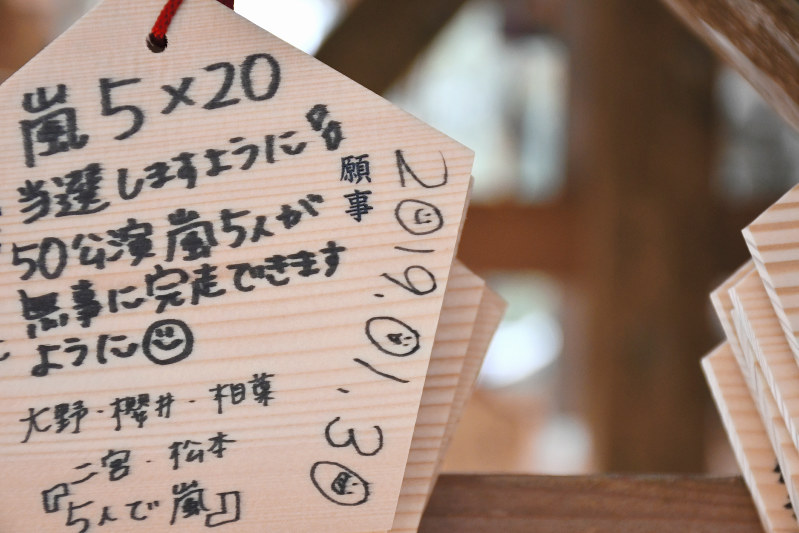 嵐5×20
当選しますように
50公演嵐5人が
無事に完走できます
ように
大野・櫻井・相葉
二宮・松本
『5人で嵐』
願事
2019.01.30